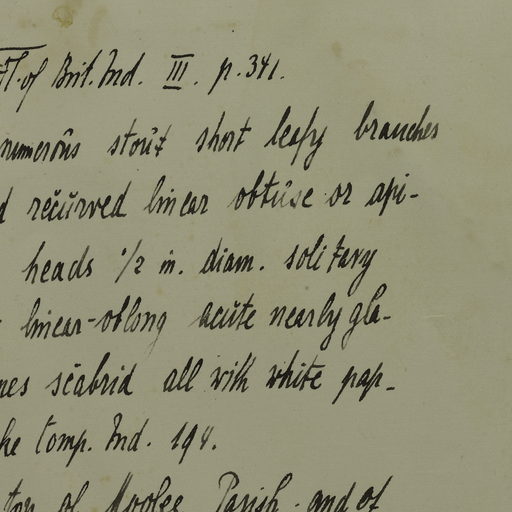 Fl. of Brit. Ind. III. p. 341.
numerous stout short leafy branches
d recurved linear obtuse or api-
heads 1/2 in. diam. solitary
linear-oblong acute nearly gla-
nes scabrid all with white pap-
he Comp. Ind. 194.
top of Parish. and of